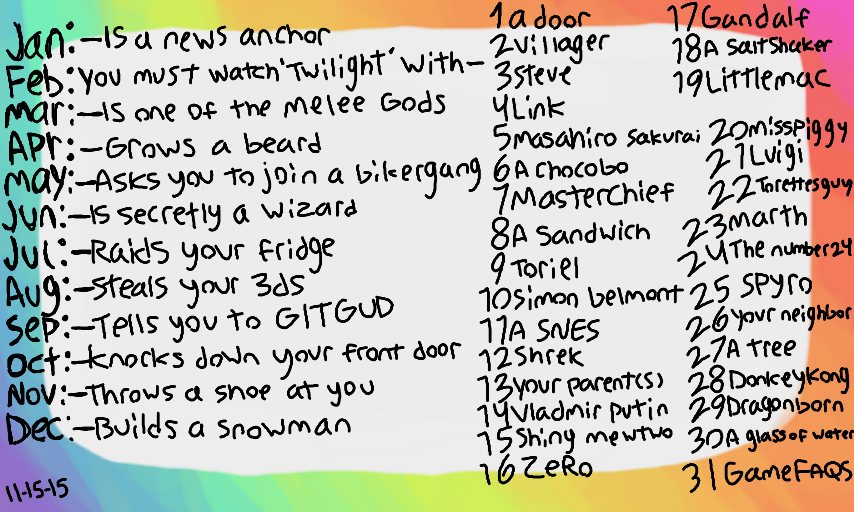 Jan:-Is a news anchor
Feb:You must watch 'Twilight' with-
Mar:-Is one of the Melee Gods
Apr:-Grows a beard
May:-Asks you to join a bikergang
Jun:-Is secretly a wizard
Jul:-Raids your fridge
Aug:-Steals your 3ds
Sep:-Tells you to GITGUD
Oct:-Knocks down your front door
Nov:-Throws a shoe at you
Dec:-Builds a snowman
11-15-15
1 a door
2 Villager
3 Steve
4 Link
5 Masahiro Sakurai
6 A Chocobo
7 MasterChief
8 A Sandwich
9 Toriel
10 Simon belmont
11 A SNES
12 Shrek
13 your parent(s)
14 Vladmir Putin
15 Shiny mewtwo
16 ZeRo
17 Gandalf
18 A SaltShaker
19 Littlemac
20 misspiggy
21 Luigi
22 Torettesguy
23 marth
24 The number 24
25 SPyro
26 your neighbor
27 A tree
28 DonkeyKong
29 Dragonborn
30 A glass of water
31 GameFAQS